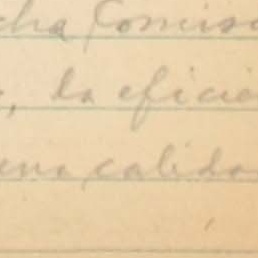 cha Comisi
, la eficie
ena calida